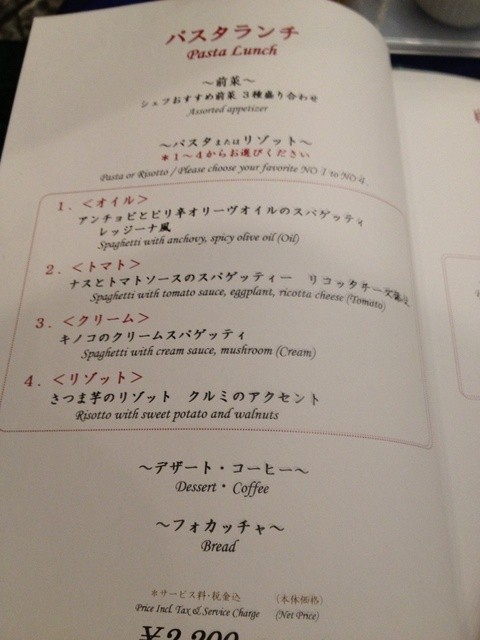 パスタランチ
Pasta Lunch
～前菜～
シェフおすすめ前菜 3種盛り合わせ
Assorted appetizer
～パスタまたはリゾット～
＊1～4からお選びください
Pasta or Risotto / Please choose your favorite NO 1 to NO 4.
1．＜オイル＞
アンチョビとピリ辛オリーヴオイルのスパゲッティ
レッジーナ風
Spaghetti with anchovy, spicy olive oil (Oil)
2．＜トマト＞
ナスとトマトソースのスパゲッティー　リコッタチーズ
Spaghetti with tomato sauce, eggplant, ricotta cheese (Tomato)
3．＜クリーム＞
キノコのクリームスパゲッティ
Spaghetti with cream sauce, mushroom (Cream)
4．＜リゾット＞
さつま芋のリゾット　クルミのアクセント
Risotto with sweet potato and walnuts
～デザート・コーヒー～
Dessert・Coffee
～フォカッチャ～
Bread
＊サービス料・税金込　（本体価格）
Price Incl. Tax & Service Charge　(Net Price)